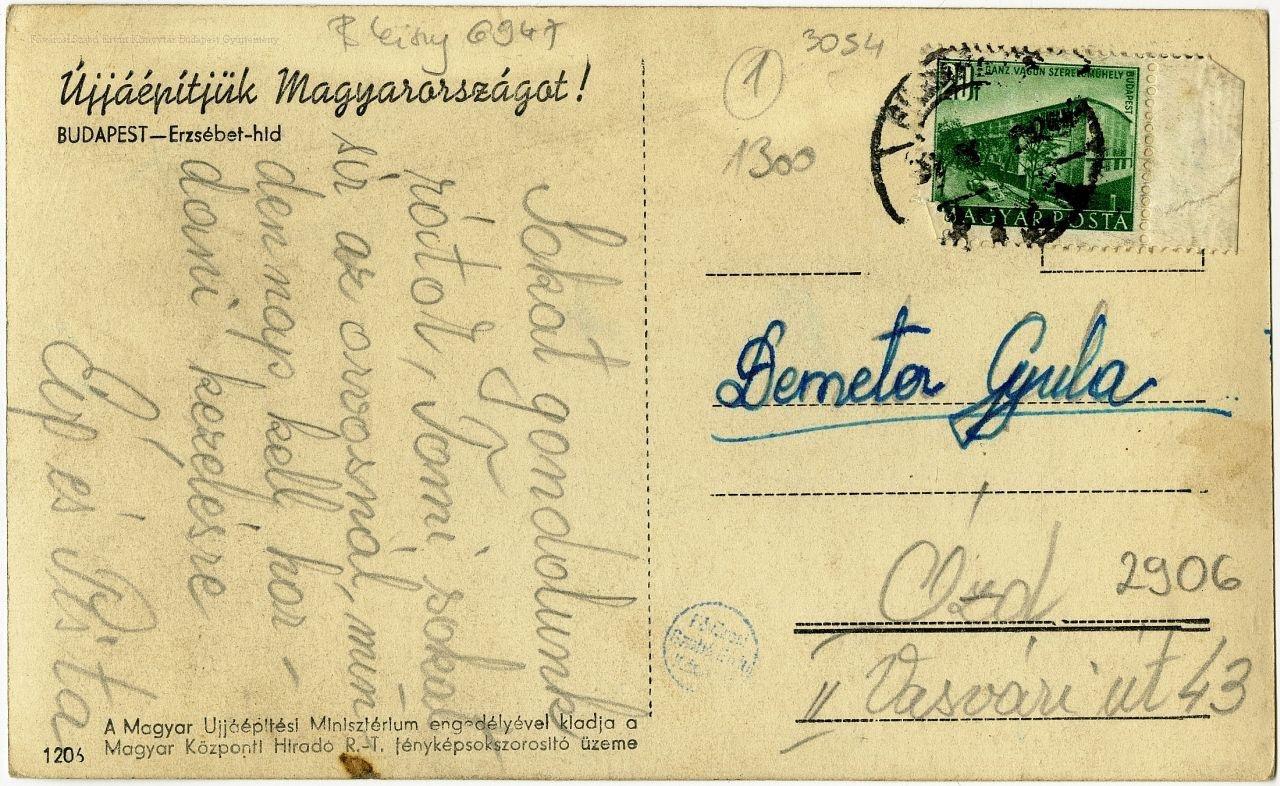 Fővárosi Szabó Ervin Könyvtár Budapest Gyűjtemény
6947
Újjáépítjük Magyarországot!
BUDAPEST—Erzsébet-híd
Sokat gondolunk
rátok, Sanyi sokat
sír az orvosnál, min
dennap kell hor-
dani kezelésre
és Rita
A Magyar Ujjáépítési Minisztérium engedélyével kiadja a
Magyar Központi Hiradó R.-T. fényképsokszorosító üzeme
1206
1
3054
1300
20f
GANZ VAGON SZERELŐMŰHELY
BUDAPEST
MAGYAR POSTA
Demeter Gyula
Ózd
2906
II Vasvári út 43